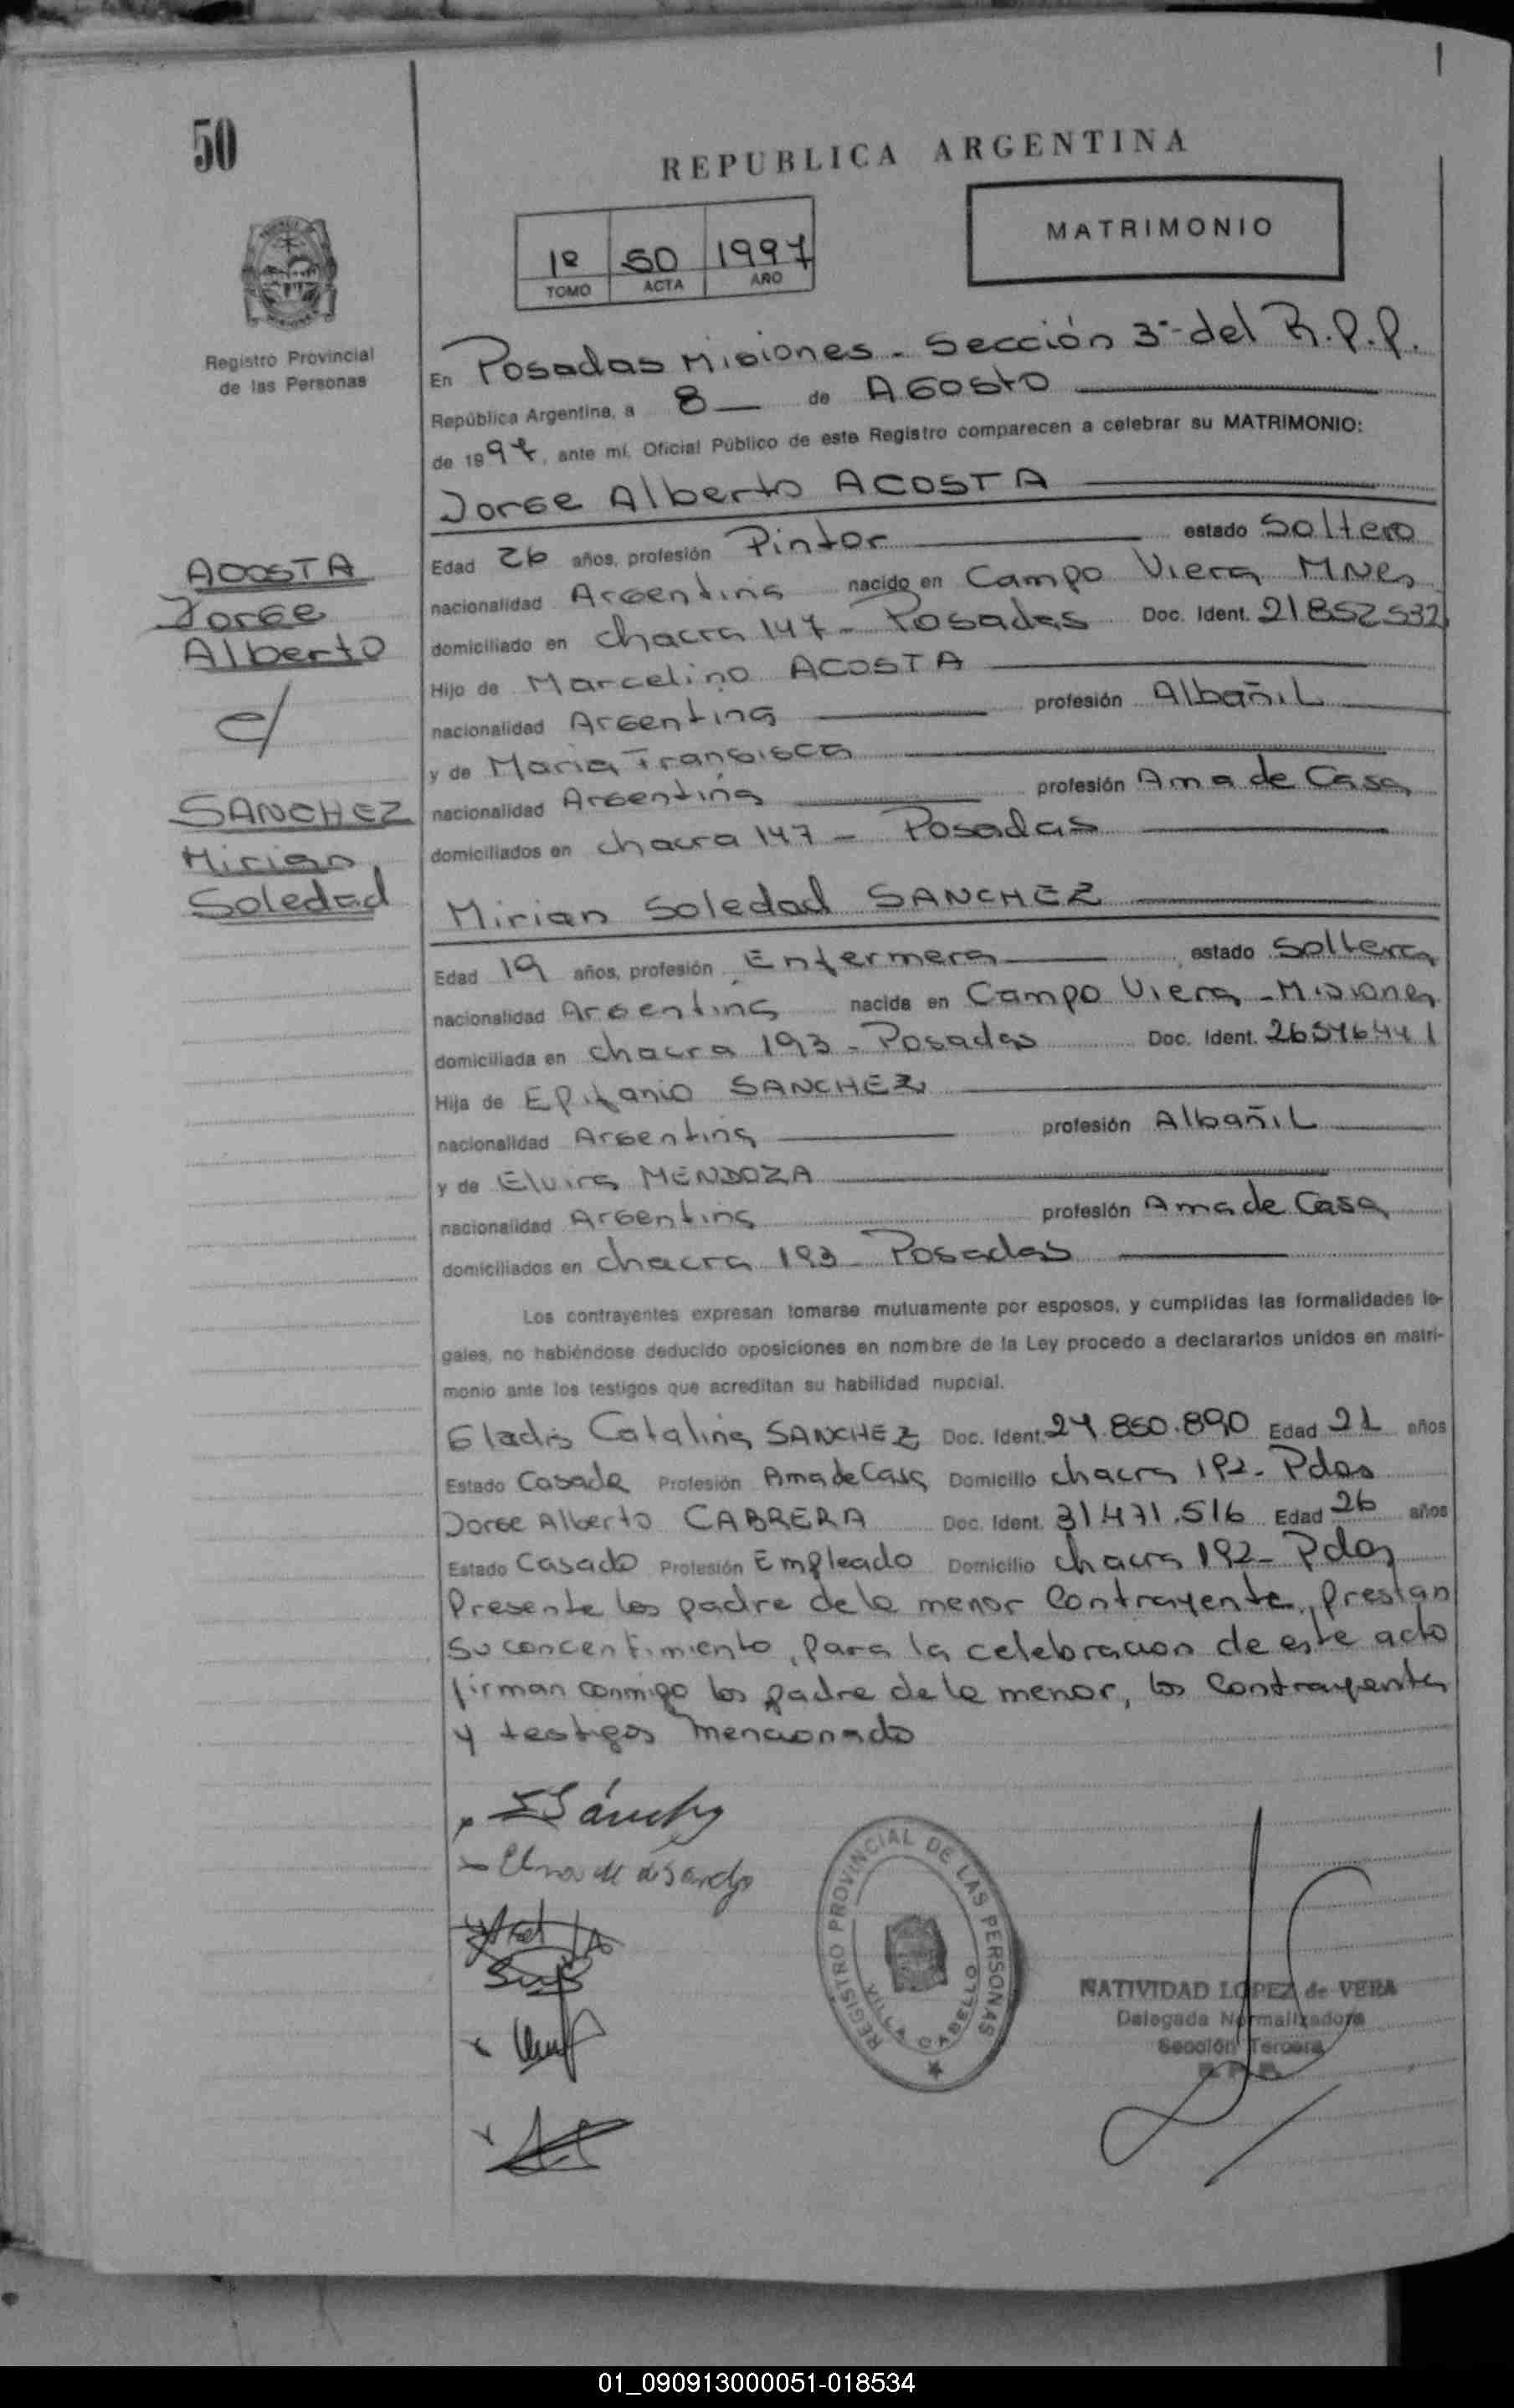 50
REPUBLICA ARGENTINA
MATRIMONIO
1º 50 1997
TOMO ACTA AÑO
Registro Provincial
de las Personas
En Posadas Misiones - Sección 3ª del R.P.P.
República Argentina, a 8 de AGOSTO
de 1997, ante mí, Oficial Público de este Registro comparecen a celebrar su MATRIMONIO:
Jorge Alberto ACOSTA
ACOSTA
Jorge
Alberto
c/
SANCHEZ
Mirian
Soledad
Edad 26 años, profesión Pintor estado Soltero
nacionalidad Argentina nacido en Campo Viera MNes
domiciliado en chacra 147 - Posadas Doc. Ident. 21852532
Hijo de Marcelino ACOSTA
nacionalidad Argentina profesión Albañil
y de Maria Fransisca
nacionalidad Argentina profesión Ama de Casa
domiciliados en chacra 147 - Posadas
Mirian Soledad SANCHEZ
Edad 19 años, profesión Enfermera estado Soltera
nacionalidad Argentina nacida en Campo Viera - Misiones
domiciliada en chacra 193 - Posadas Doc. Ident. 26546441
Hija de Epifanio SANCHEZ
nacionalidad Argentina profesión Albañil
y de Elvira MENDOZA
nacionalidad Argentina profesión Ama de Casa
domiciliados en chacra 193 - Posadas
Los contrayentes expresan tomarse mutuamente por esposos, y cumplidas las formalidades le-
gales, no habiéndose deducido oposiciones en nombre de la Ley procedo a declararlos unidos en matri-
monio ante los testigos que acreditan su habilidad nupcial.
Gladis Catalina SANCHEZ Doc. Ident. 24.850.890 Edad 21 años
Estado Casada Profesión Ama de Casa Domicilio chacra 192 - Pdas
Jorge Alberto CABRERA Doc. Ident. 31.471.516 Edad 26 años
Estado Casado Profesión Empleado Domicilio chacra 192 - Pdas
Presente los padre de la menor Contrayente, prestan
su concentimiento, para la celebracion de este acto
firman conmigo los padre de la menor, los Contrayentes
y testigos mencionado
REGISTRO PROVINCIAL DE LAS PERSONAS
VILLA CABELLO
NATIVIDAD LOPEZ de VERA
Delegada Normalizadora
Sección Tercera
01_090913000051-018534